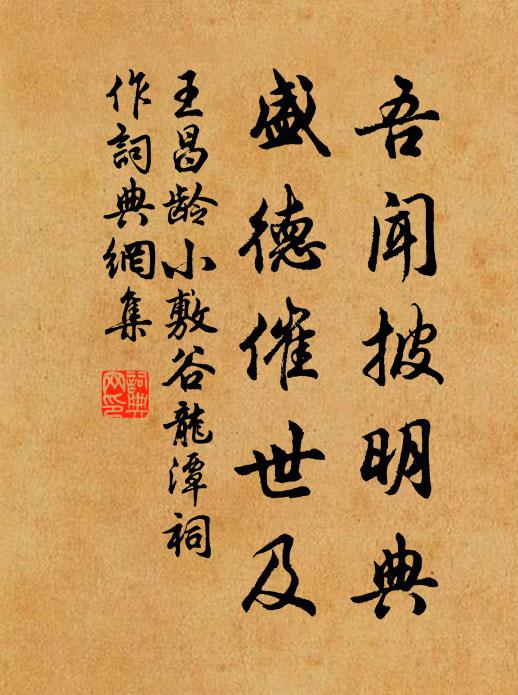 吾闻披明典
盛德催世及
王昌龄小敷谷龍潭祠
作詞典網集
詞典
网印